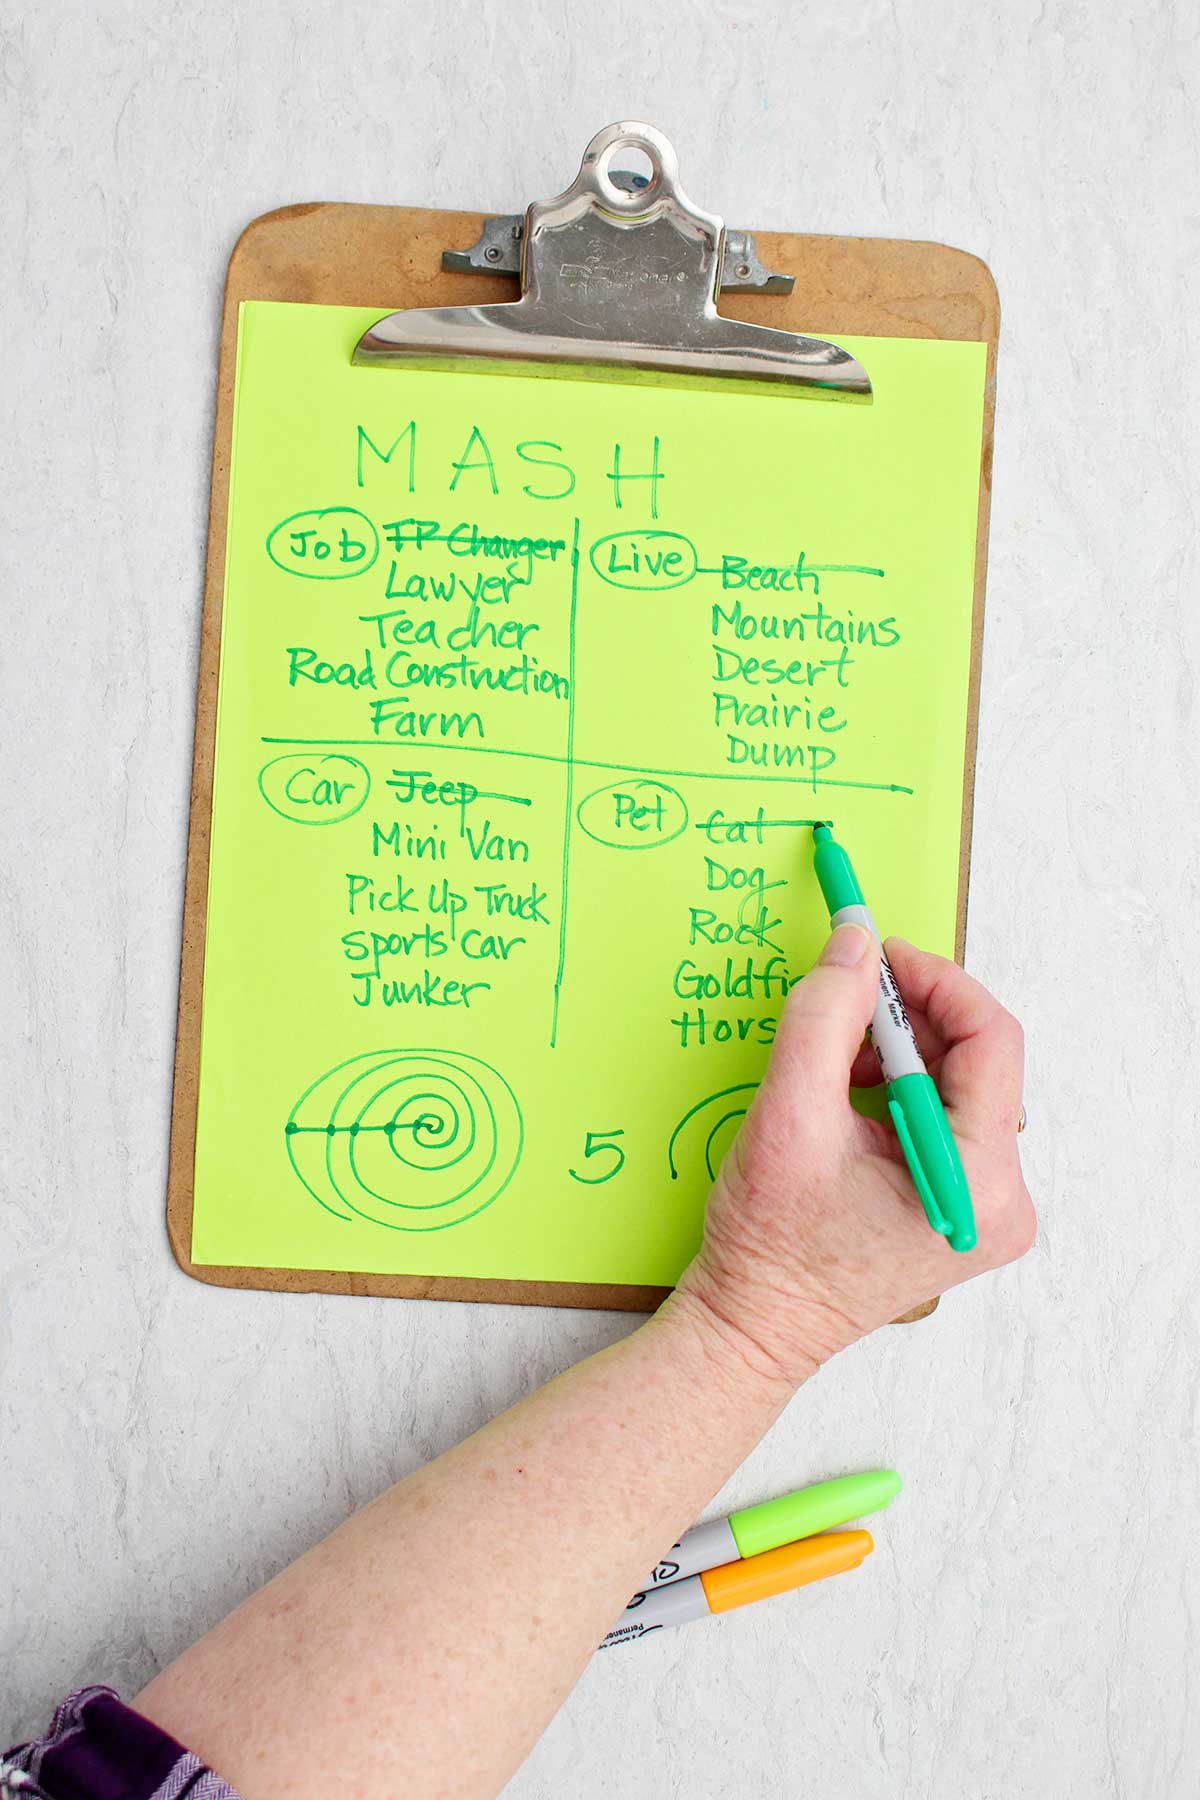 MASH
Job TP Changer
Lawyer
Teacher
Road Construction
Farm
Live Beach
Mountains
Desert
Prairie
Dump
Car Jeep
Mini Van
Pick Up Truck
Sports Car
Junker
Pet Cat
Dog
Rock
Goldfi
Hors
5
Permanent
Marker
Permanen